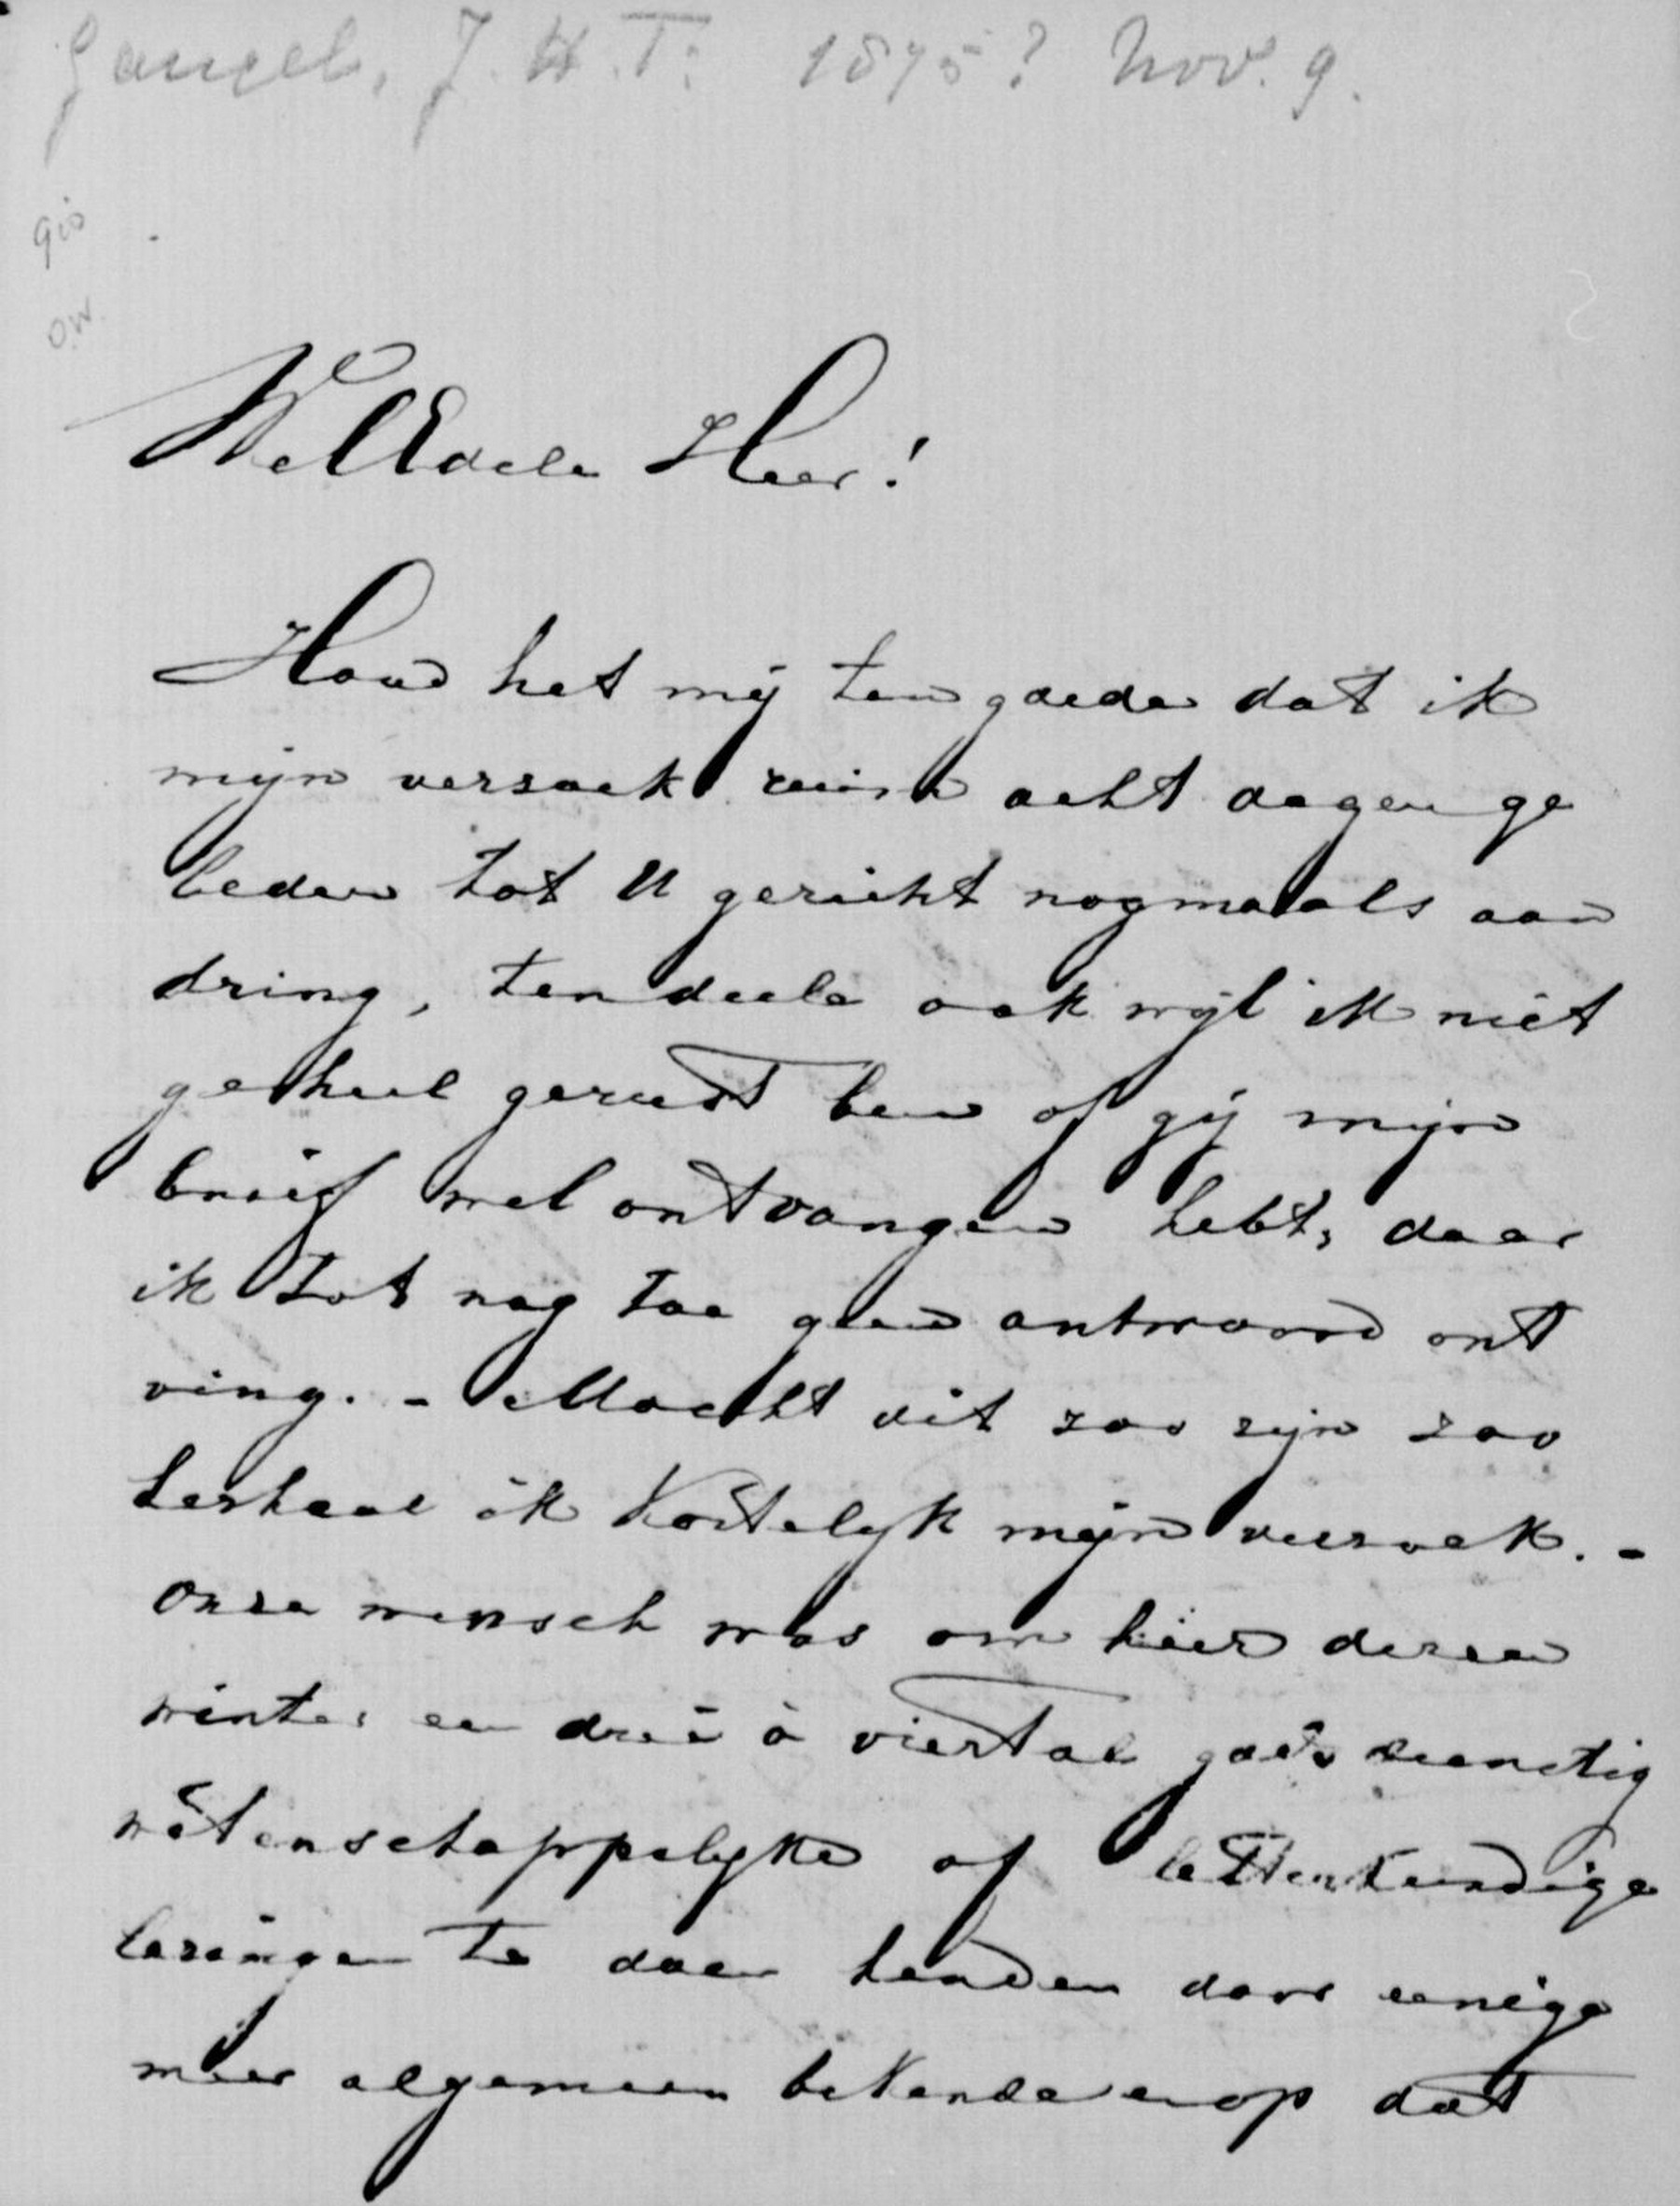 J. H. T. 1875? Nov. 9.
WelEdele Heer!
Houd het mij ten goede dat ik
mijn verzoek ruim acht dagen ge
leden tot U gericht nogmaals aan
dring, ten deele ook wijl ik niet
geheel gerust ben of gij mijn
brief wel ontvangen hebt, daar
ik tot nog toe geen antwoord ont
ving. - Mocht dit zoo zijn zoo
herhaal ik kortelijk mijn verzoek. -
Onze wensch was om hier dezen
winter een drie à viertal godsdienstig
wetenschappelijke of letterkundige
lezingen te doen houden door eenige
meer algemeen bekende op dat